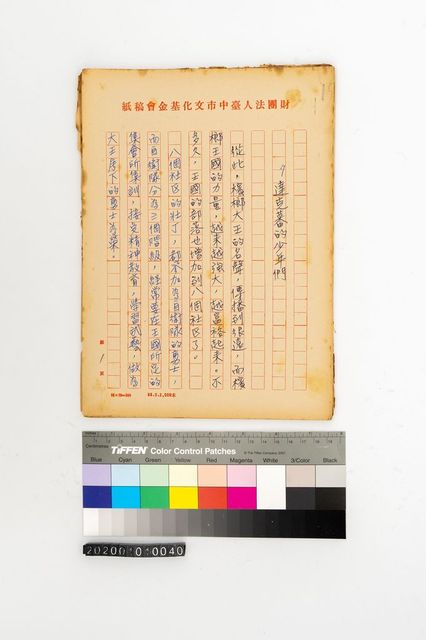 財團法人臺中市文化基金會稿紙
9 達克蕃的少年們
從此，檳榔大王的名聲，傳播到很遠，而檳
榔王國的力量，越來越強大，越富裕起來。不
多久，王國的部落也增加到八個社区了。
八個社区的壯丁，都參加為自衛隊的勇士，
而自衛隊分為三個階級，經常要在王國所定的
集會所集訓，接受精神教育，學習武藝，做為
大王房下的勇士為榮。
第 1 頁
TIFFEN Color Control Patches
Centimetres
Blue Cyan Green Yellow Red Magenta White 3/Color Black
202001010040